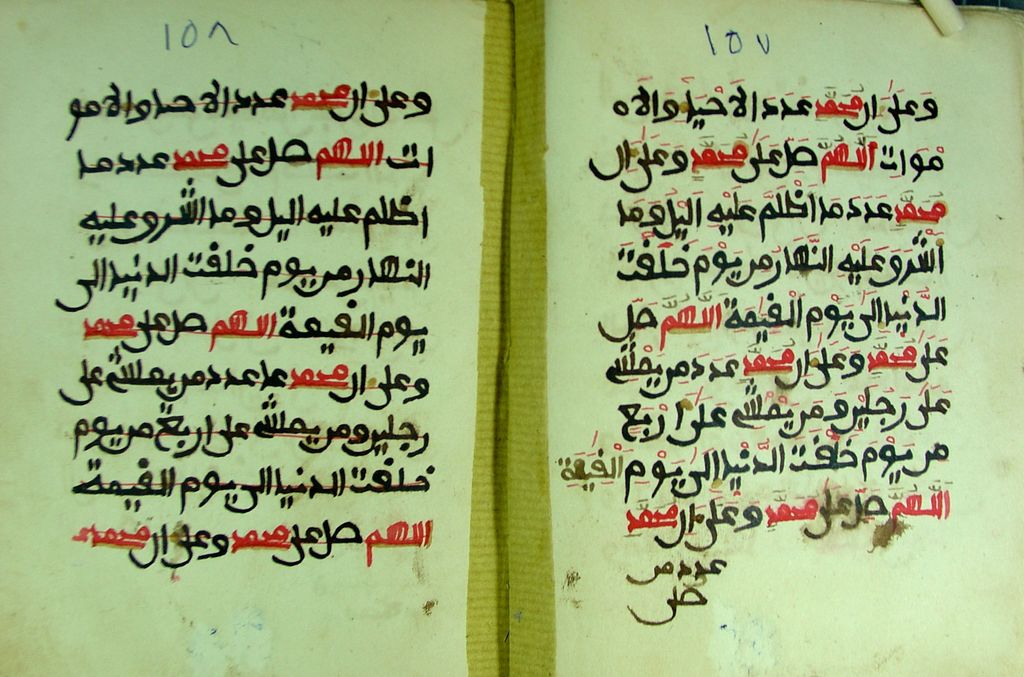 ١٥٧
وَعَلَى ءالِ مُحَمَّد عَدَدَ الَاحْيَا وَالَاه
مْوَات اللَّهُمَّ صَلِّ عَلَى مُحَمَّد وَعَلَى ءال
مُحَمَّد عَدَدَ مَا أَظْلَمَ عَلَيْهِ الَّيْل وَمَا
أَشْرَق عَلَيْهِ النَّهَار مِن يَوْم خَلَقْتَ
الدُّنْيَا الَى يَوْم الْقِيَمَة اللَّهُمَّ صَلِّ
عَلَى مُحَمَّد وَعَلَى ءال مُحَمَّد عَدَدَ مَن يَمْشِي
عَلَى رِجْلَيْن وَمَن يَمْشِي عَلَى ارْبَع
مِن يَوْم خَلَقْتَ الدُّنْيَا الَى يَوْم الْقِيَمَة
اللَّهُمَّ صَلِّ عَلَى مُحَمَّد وَعَلَى ءال مُحَمَّد
عدد من
صلى
١٥٨
وعلى ءال محمد عدد الاحيا والامو
ات اللهم صل على محمد عدد ما
اظلم عليه اليل وما اشرق عليه
النهار من يوم خلقت الدنيا الى
يوم القيمة اللهم صل على محمد
وعلى ءال محمد عدد من يمشي على
رجلين ومن يمشي على اربع من يوم
خلقت الدنيا الى يوم القيمة
اللهم صل على محمد وعلى ءال محمد